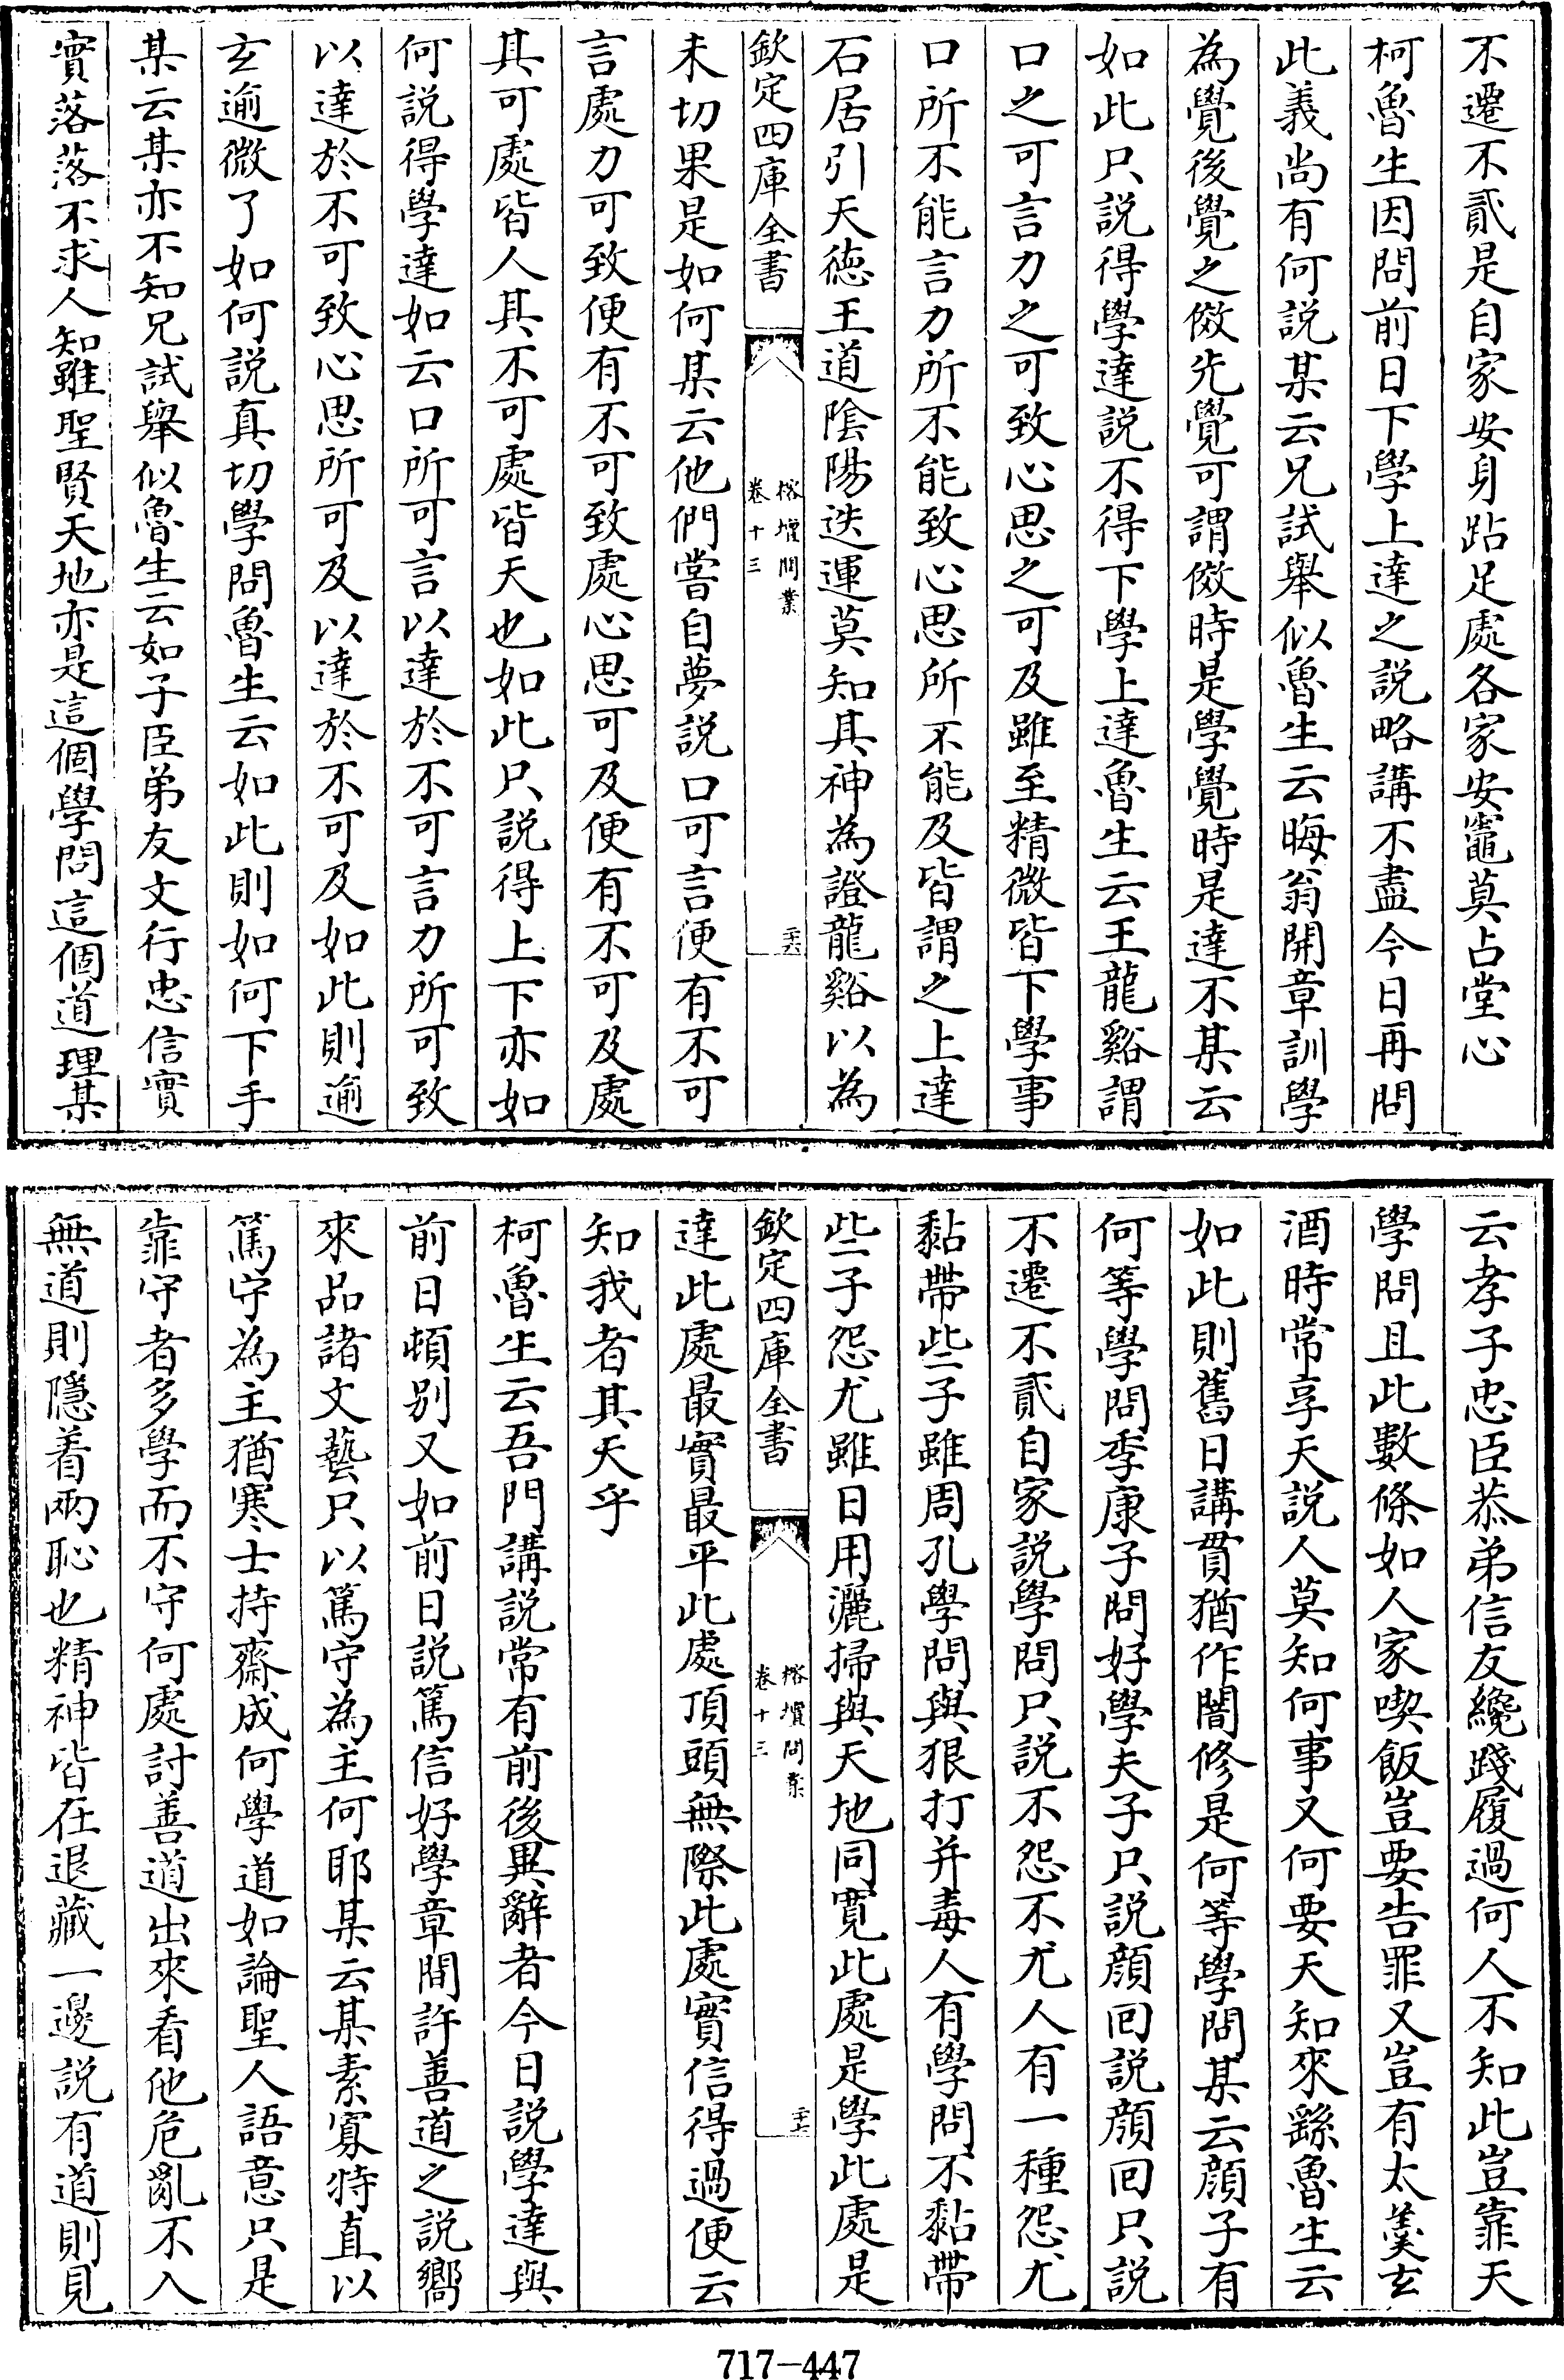 不遷不貳是自家安身跕足處各家安竈莫占堂心
柯魯生因問前日下學上達之說略講不盡今日再問
此義尚有何說某云兄試舉似魯生云晦翁開章訓學
為覺後覺之傚先覺可謂傚時是學覺時是達不某云
如此只說得學達說不得下學上達魯生云王龍谿謂
口之可言力之可致心思之可及雖至精微皆下學事
口所不能言力所不能致心思所不能及皆謂之上達
石居引天德王道陰陽迭運莫知其神為證龍谿以為
欽定四庫全書
榕壇問業
卷十三
二十六
未切果是如何某云他們嘗自夢說口可言便有不可
言處力可致便有不可致處心思可及便有不可及處
其可處皆人其不可處皆天也如此只說得上下亦如
何說得學達如云口所可言以達於不可言力所可致
以達於不可致心思所可及以達於不可及如此則逾
玄逾微了如何說真切學問魯生云如此則如何下手
某云某亦不知兄試舉似魯生云如子臣弟友文行忠信實
實落落不求人知雖聖賢天地亦是這個學問這個道理某
云孝子忠臣恭弟信友纔踐履過何人不知此豈靠天
學問且此數條如人家喫飯豈要告罪又豈有太羹玄
酒時常享天說人莫知何事又何要天知來繇魯生云
如此則舊日講貫猶作闇修是何等學問某云顏子有
何等學問季康子問好學夫子只說顏回說顏回只說
不遷不貳自家說學問只說不怨不尤人有一種怨尤
黏帶些子雖周孔學問與狠打并毒人有學問不黏帶
些子怨尤雖日用灑掃與天地同寬此處是學此處是
欽定四庫全書
榕壇問業
卷十三
二十七
達此處最實最平此處頂頭無際此處實信得過便云
知我者其天乎
柯魯生云吾門講說常有前後異辭者今日說學達與
前日頓別又如前日說篤信好學章間許善道之說嚮
來品諸文藝只以篤守為主何耶某云某素寡特直以
篤守為主猶寒士持齋成何學道如論聖人語意只是
靠守者多學而不守何處討善道出來看他危亂不入
無道則隱着兩恥也精神皆在退藏一邊說有道則見
717-447